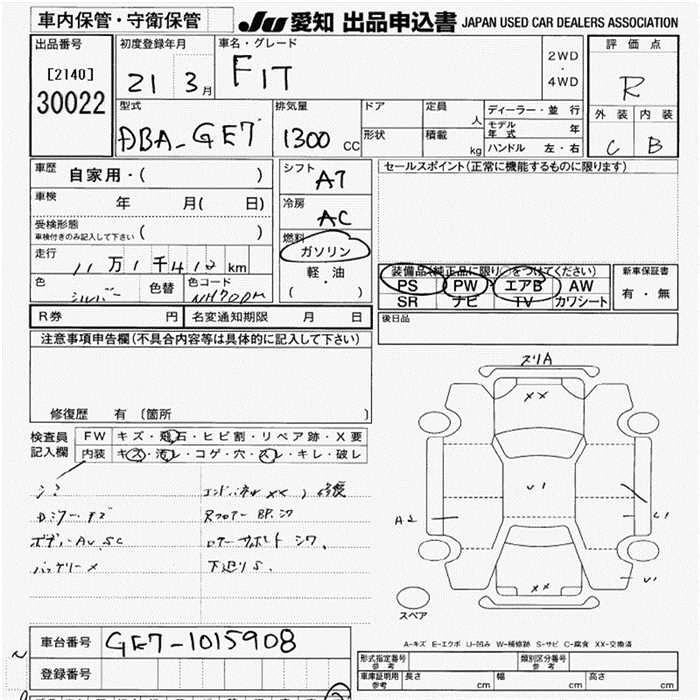 車内保管・守衛保管
JU 愛知 出品申込書 JAPAN USED CAR DEALERS ASSOCIATION
出品番号
[2140]
30022
初度登録年月
21 3月
車名・グレード
FIT
2WD
・
4WD
評価点
R
外装 内装
C B
型式
DBA-GE7
排気量
1300 CC
ドア
形状
定員
人
積載
kg
ディーラー・並行
モデル年式 年
ハンドル 左・右
車歴 自家用・( )
車検 年 月( 日)
受検形態
車検付きのみ記入して下さい ( )
走行 11万1千412km
色 シルバー 色替 色コード NH700M
シフト
AT
冷房
AC
燃料
ガソリン
軽・油
( ・ )
セールスポイント(正常に機能するものに限ります)
装備品(純正品に限り○をつけてください)
PS PW エアB AW
SR ナビ TV カワシート
新車保証書
有・無
R券 円 名変通知期限 月 日
後日品
注意事項申告欄(不具合内容等は具体的に記入して下さい)
修復歴 有 〔箇所 〕
検査員
記入欄
FW キズ・飛石・ヒビ割・リペア跡・X要
内装 キズ・汚レ・コゲ・穴・スレ・キレ・破レ
シミ
ボディーAU,SC
バッテリーX
下廻りS.
ズリA
XX
U1
A2
C1
U1
XX
スペア
A-キズ E-エクボ U-凹み W-補修跡 S-サビ C-腐食 XX-交換済
車台番号 GE7-1015908
登録番号
形式指定番号
参考
類別区分番号
参考
車庫証明用
参考
長さ cm 幅 cm 高さ cm